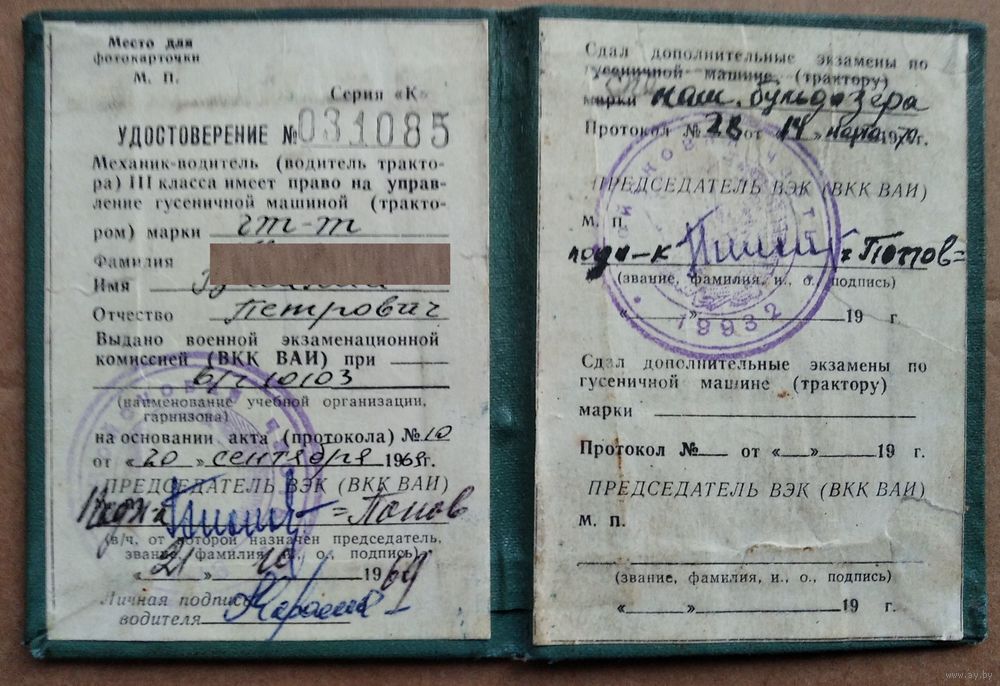 Место для
фотокарточки
М. П.
Серия «К»
УДОСТОВЕРЕНИЕ № 031085
Механик-водитель (водитель тракто-
ра) III класса имеет право на управ-
ление гусеничной машиной (тракто-
ром) марки гт-т
Фамилия
Имя
Отчество Петрович
Выдано военной экзаменационной
комиссией (ВКК ВАИ) при
в/ч 10103
(наименование учебной организации,
гарнизона)
на основании акта (протокола) № 10
от «20» сентября 1969г.
ПРЕДСЕДАТЕЛЬ ВЭК (ВКК ВАИ)
=Попов
(в/ч, от которой назначен председатель,
звание, фамилия, и., о., подпись)
«21» 10 1969
Личная подпись
водителя
Сдал дополнительные экзамены по
гусеничной машине (трактору)
марки маш. бульдозера
Протокол № 28 от «14» марта 1970г.
ПРЕДСЕДАТЕЛЬ ВЭК (ВКК ВАИ)
М. П.
подп-к Попов=
(звание, фамилия, и., о., подпись)
« » 19 г.
19932
Сдал дополнительные экзамены по
гусеничной машине (трактору)
марки
Протокол № от « » 19 г.
ПРЕДСЕДАТЕЛЬ ВЭК (ВКК ВАИ)
М. П.
(звание, фамилия, и., о., подпись)
« » 19 г.
www.ay.by